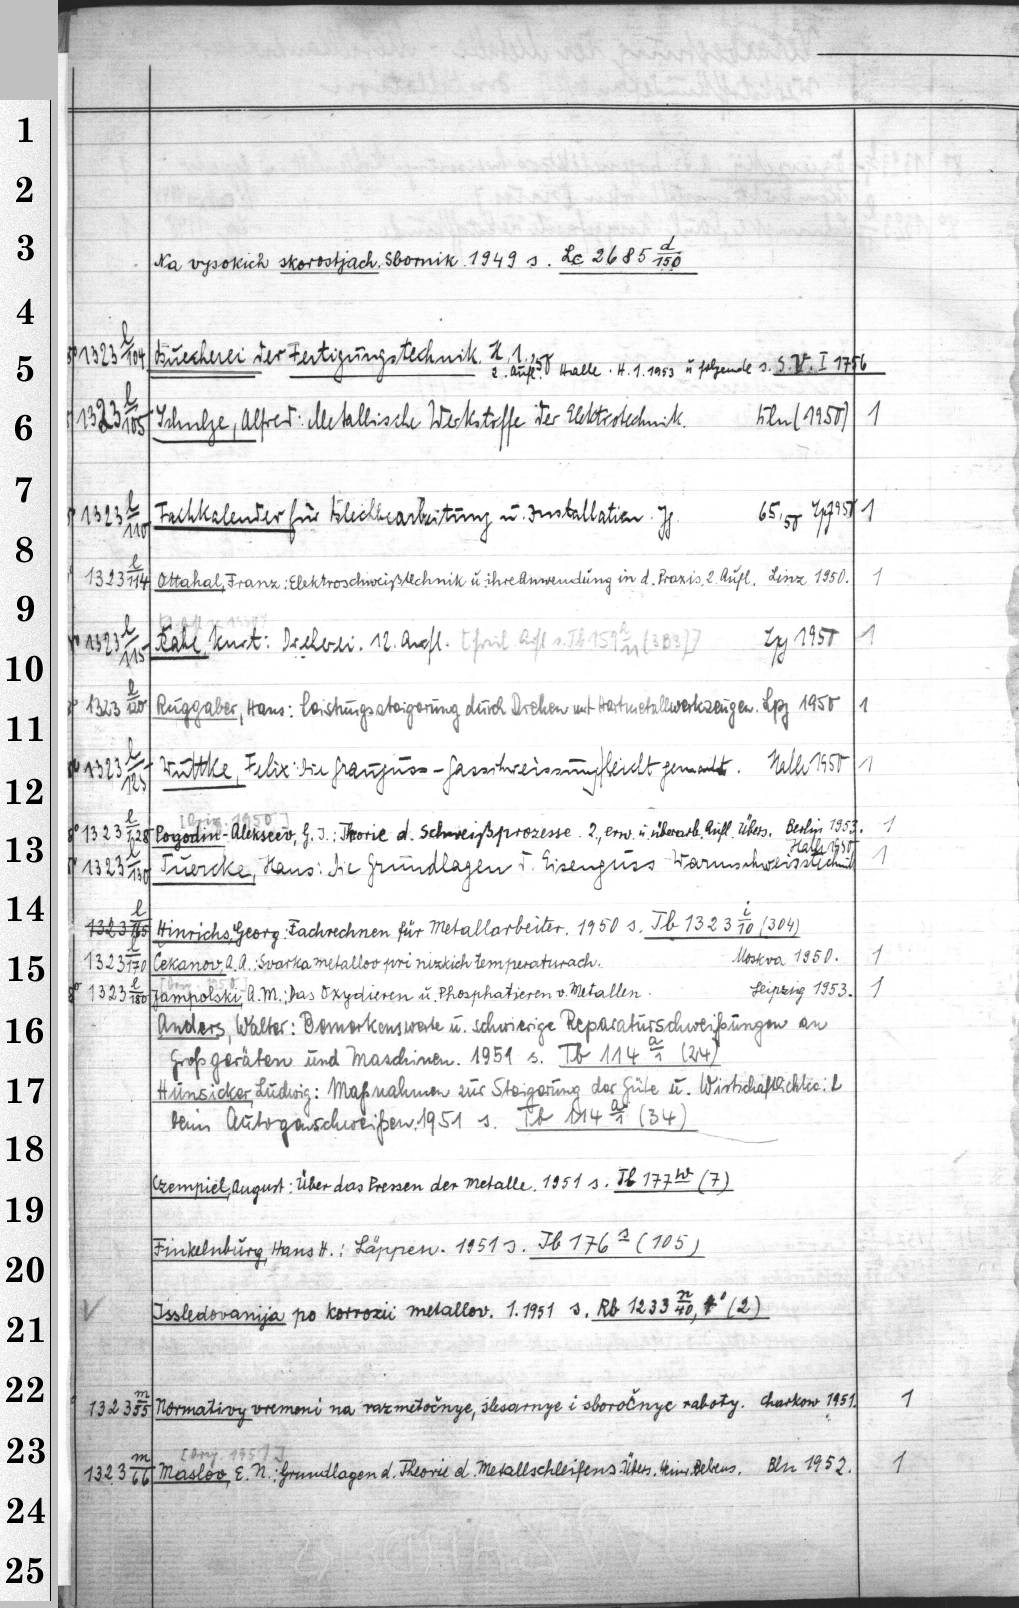 1
2
3
Na vysokich skorostjach. Sbornik. 1949 s. Lc 2685 d/150
4
1323 l/104 Buecherei der Fertigungstechnik. H. 1.,50
5
2. Aufl. Halle. H. 1. 1953 u folgende s. S. V. I 1756
6
1323 l/105 Schulze, Alfred: Metallische Werkstoffe der Elektrotechnik. Bln (1950) 1
7
1323 l/110 Fachkalender für Blechbearbeitung u. Installation. Jg. 65,50 Lpz 1950 1
8
1323 l/114 Ottahal, Franz: Elektroschweißtechnik u. ihre Anwendung in d. Praxis. 2. Aufl. Linz 1950. 1
9
1323 l/115 Kurt: Dreherei. 12. Aufl. Lpz 1950 1
10
1323 l/120 Ruggaber, Hans: Leistungssteigerung durch Drehen mit Hartmetallwerkzeugen. Lpz 1950 1
11
1323 l/125 Wuttke, Felix: Die Grauguss-Gasschweissung leicht gemacht. Halle 1950 1
12
[Orig. 1950]
1323 l/128 Pogodin-Alekseev, G. I.: Theorie d. Schweißprozesse. 2., erw. u. überarb. Aufl. Übers. Berlin 1953. 1
13
Halle 1950
1323 l/130 Tuercke, Hans: Die Grundlagen d. Eisenguss-Warmschweisstechnik 1
14
1323 l/165 Hinrichs, Georg: Fachrechnen für Metallarbeiter. 1950 s. Tb 1323 i/10 (304)
15
1323 l/170 Čekanov, A. A.: Svarka metallov pri nizkich temperaturach. Moskva 1950. 1
1323 l/180 Jampolski, A. M.: Das Oxydieren u. Phosphatieren v. Metallen. Leipzig 1953. 1
16
Anders, Walter: Bemerkenswerte u. schwierige Reparaturschweißungen an
Großgeräten und Maschinen. 1951 s. Tb 114 a/1 (24)
17
Hunsicker, Ludwig: Maßnahmen zur Steigerung der Güte u. Wirtschaftlichkeit
beim Autogenschweißen. 1951 s. Tb 114 a/1 (34)
18
Czempiel, August: Über das Pressen der Metalle. 1951 s. Tb 177 w (7)
19
Finkelnburg, Hans H.: Läppen. 1951 s. Tb 176 s (105)
20
Issledovanija po korrozii metallov. 1. 1951 s. Rb 1233 n/40, (2)
21
22
1323 m/55 Normativy vremeni na razmetočnye, slesarnye i sboročnye raboty. Charkow 1951. 1
23
[Orig 1951]
1323 m/66 Maslov, E. N.: Grundlagen d. Theorie d. Metallschleifens. Übers. Bln 1952. 1
24
25